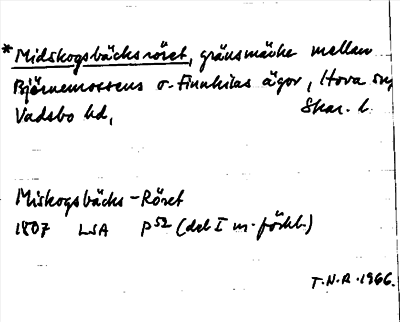 *Midskogsbäcksröset, gränsmärke mellan
Björnemossens o. Finnhilas ägor, Hova sn,
Vadsbo hd, Skar. l.
Miskogsbäcks-Röset
1807 LSA P52 (del I m. förkl.)
T.N.R. 1966.